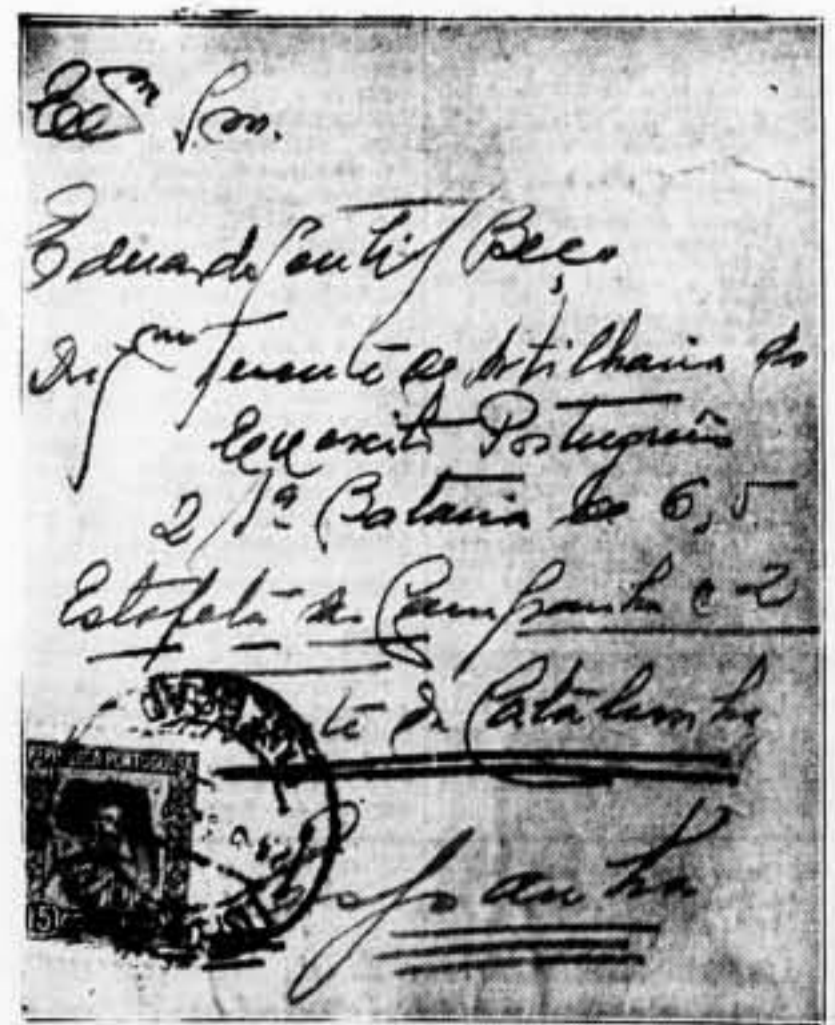 Exmº Snr.
Eduardo Beça
Digmo Tenente de Artilharia do
Exercito Português
2/1ª Bataria de 6,5
Estafeta de Campanha c 2
de Catalunha
REPUBLICA PORTUGUESA
Espanha